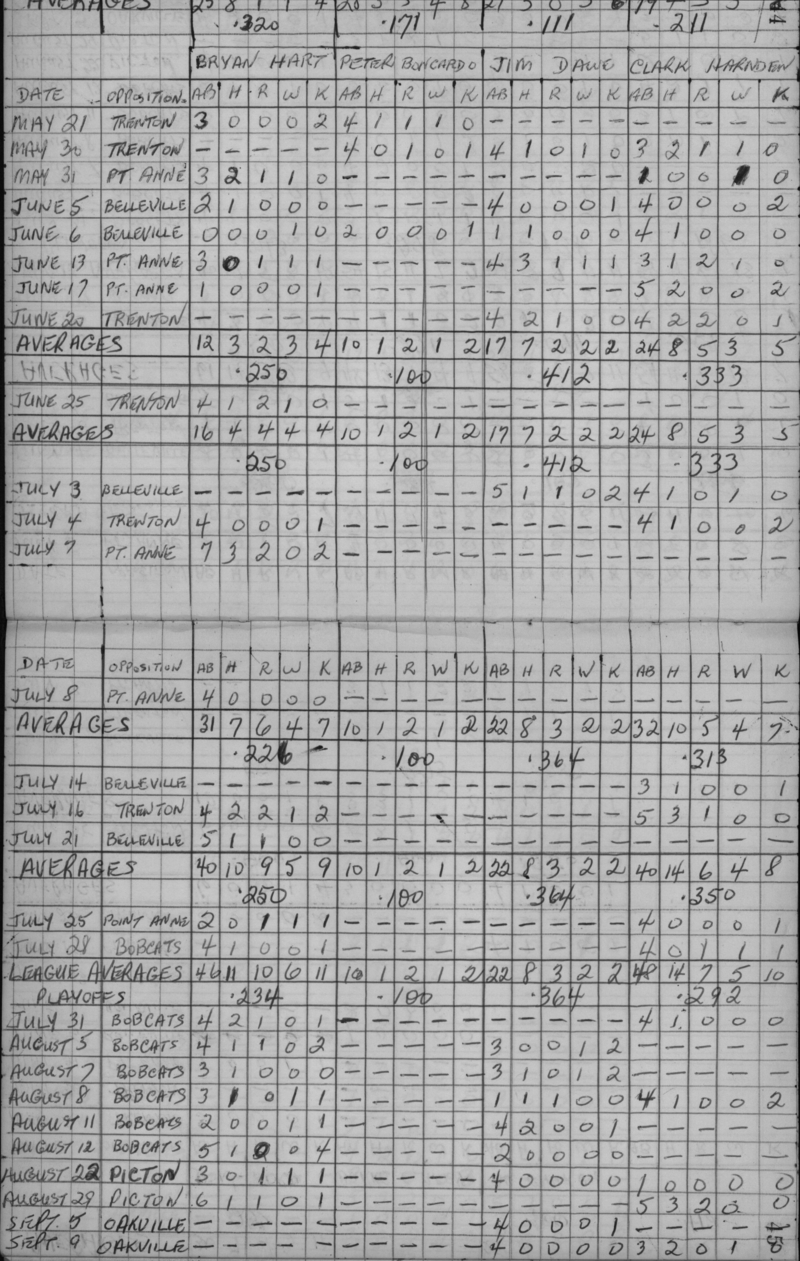 AVERAGES
.320 .171 .111 .211
BRYAN HART PETER BONCARDO JIM DAWE CLARK HARNDEN
DATE OPPOSITION. AB H R W K AB H R W K AB H R W K AB H R W K
MAY 21 TRENTON 3 0 0 0 2 4 1 1 1 0 - - - - - - - - - -
MAY 30 TRENTON - - - - - 4 0 1 0 1 4 1 0 1 0 3 2 1 1 0
MAY 31 PT ANNE 3 2 1 1 0 - - - - - - - - - - 1 0 0 1 0
JUNE 5 BELLEVILLE 2 1 0 0 0 - - - - - 4 0 0 0 1 4 0 0 0 2
JUNE 6 BELLEVILLE 0 0 0 1 0 2 0 0 0 1 1 1 0 0 0 4 1 0 0 0
JUNE 13 PT. ANNE 3 0 1 1 1 - - - - - 4 3 1 1 1 3 1 2 1 0
JUNE 17 PT. ANNE 1 0 0 0 1 - - - - - - - - - - 5 2 0 0 2
JUNE 20 TRENTON - - - - - - - - - - 4 2 1 0 0 4 2 2 0 1
AVERAGES 12 3 2 3 4 10 1 2 1 2 17 7 2 2 2 24 8 5 3 5
.250 .100 .412 .333
JUNE 25 TRENTON 4 1 2 1 0 - - - - - - - - - - - - - - -
AVERAGES 16 4 4 4 4 10 1 2 1 2 17 7 2 2 2 24 8 5 3 5
.250 .100 .412 .333
JULY 3 BELLEVILLE - - - - - - - - - - 5 1 1 0 2 4 1 0 1 0
JULY 4 TRENTON 4 0 0 0 1 - - - - - - - - - - 4 1 0 0 2
JULY 7 PT. ANNE 7 3 2 0 2 - - - - - - - - - - - - - - -
DATE OPPOSITION AB H R W K AB H R W K AB H R W K AB H R W K
JULY 8 PT. ANNE 4 0 0 0 0 - - - - - - - - - - - - - - -
AVERAGES 31 7 6 4 7 10 1 2 1 2 22 8 3 2 2 32 10 5 4 7
.226 .100 .364 .313
JULY 14 BELLEVILLE - - - - - - - - - - - - - - - 3 1 0 0 1
JULY 16 TRENTON 4 2 2 1 2 - - - - - - - - - - 5 3 1 0 0
JULY 21 BELLEVILLE 5 1 1 0 0 - - - - - - - - - - - - - - -
AVERAGES 40 10 9 5 9 10 1 2 1 2 22 8 3 2 2 40 14 6 4 8
.250 .100 .364 .350
JULY 25 POINT ANNE 2 0 1 1 1 - - - - - - - - - - 4 0 0 0 1
JULY 28 BOBCATS 4 1 0 0 1 - - - - - - - - - - 4 0 1 1 1
LEAGUE AVERAGES 46 11 10 6 11 10 1 2 1 2 22 8 3 2 2 48 14 7 5 10
PLAYOFFS .234 .100 .364 .292
JULY 31 BOBCATS 4 2 1 0 1 - - - - - - - - - - 4 1 0 0 0
AUGUST 5 BOBCATS 4 1 1 0 2 - - - - - 3 0 0 1 2 - - - - -
AUGUST 7 BOBCATS 3 1 0 0 0 - - - - - 3 1 0 1 2 - - - - -
AUGUST 8 BOBCATS 3 1 0 1 1 - - - - - 1 1 1 0 0 4 1 0 0 2
AUGUST 11 BOBCATS 2 0 0 1 1 - - - - - 4 2 0 0 1 - - - - -
AUGUST 12 BOBCATS 5 1 0 0 4 - - - - - 2 0 0 0 0 - - - - -
AUGUST 22 PICTON 3 0 1 1 1 - - - - - 4 0 0 0 0 1 0 0 0 0
AUGUST 29 PICTON 6 1 1 0 1 - - - - - - - - - - 5 3 2 0 0
SEPT. 5 OAKVILLE - - - - - - - - - - 4 0 0 0 1 - - - - -
SEPT. 9 OAKVILLE - - - - - - - - - - 4 0 0 0 0 3 2 0 1 0
45